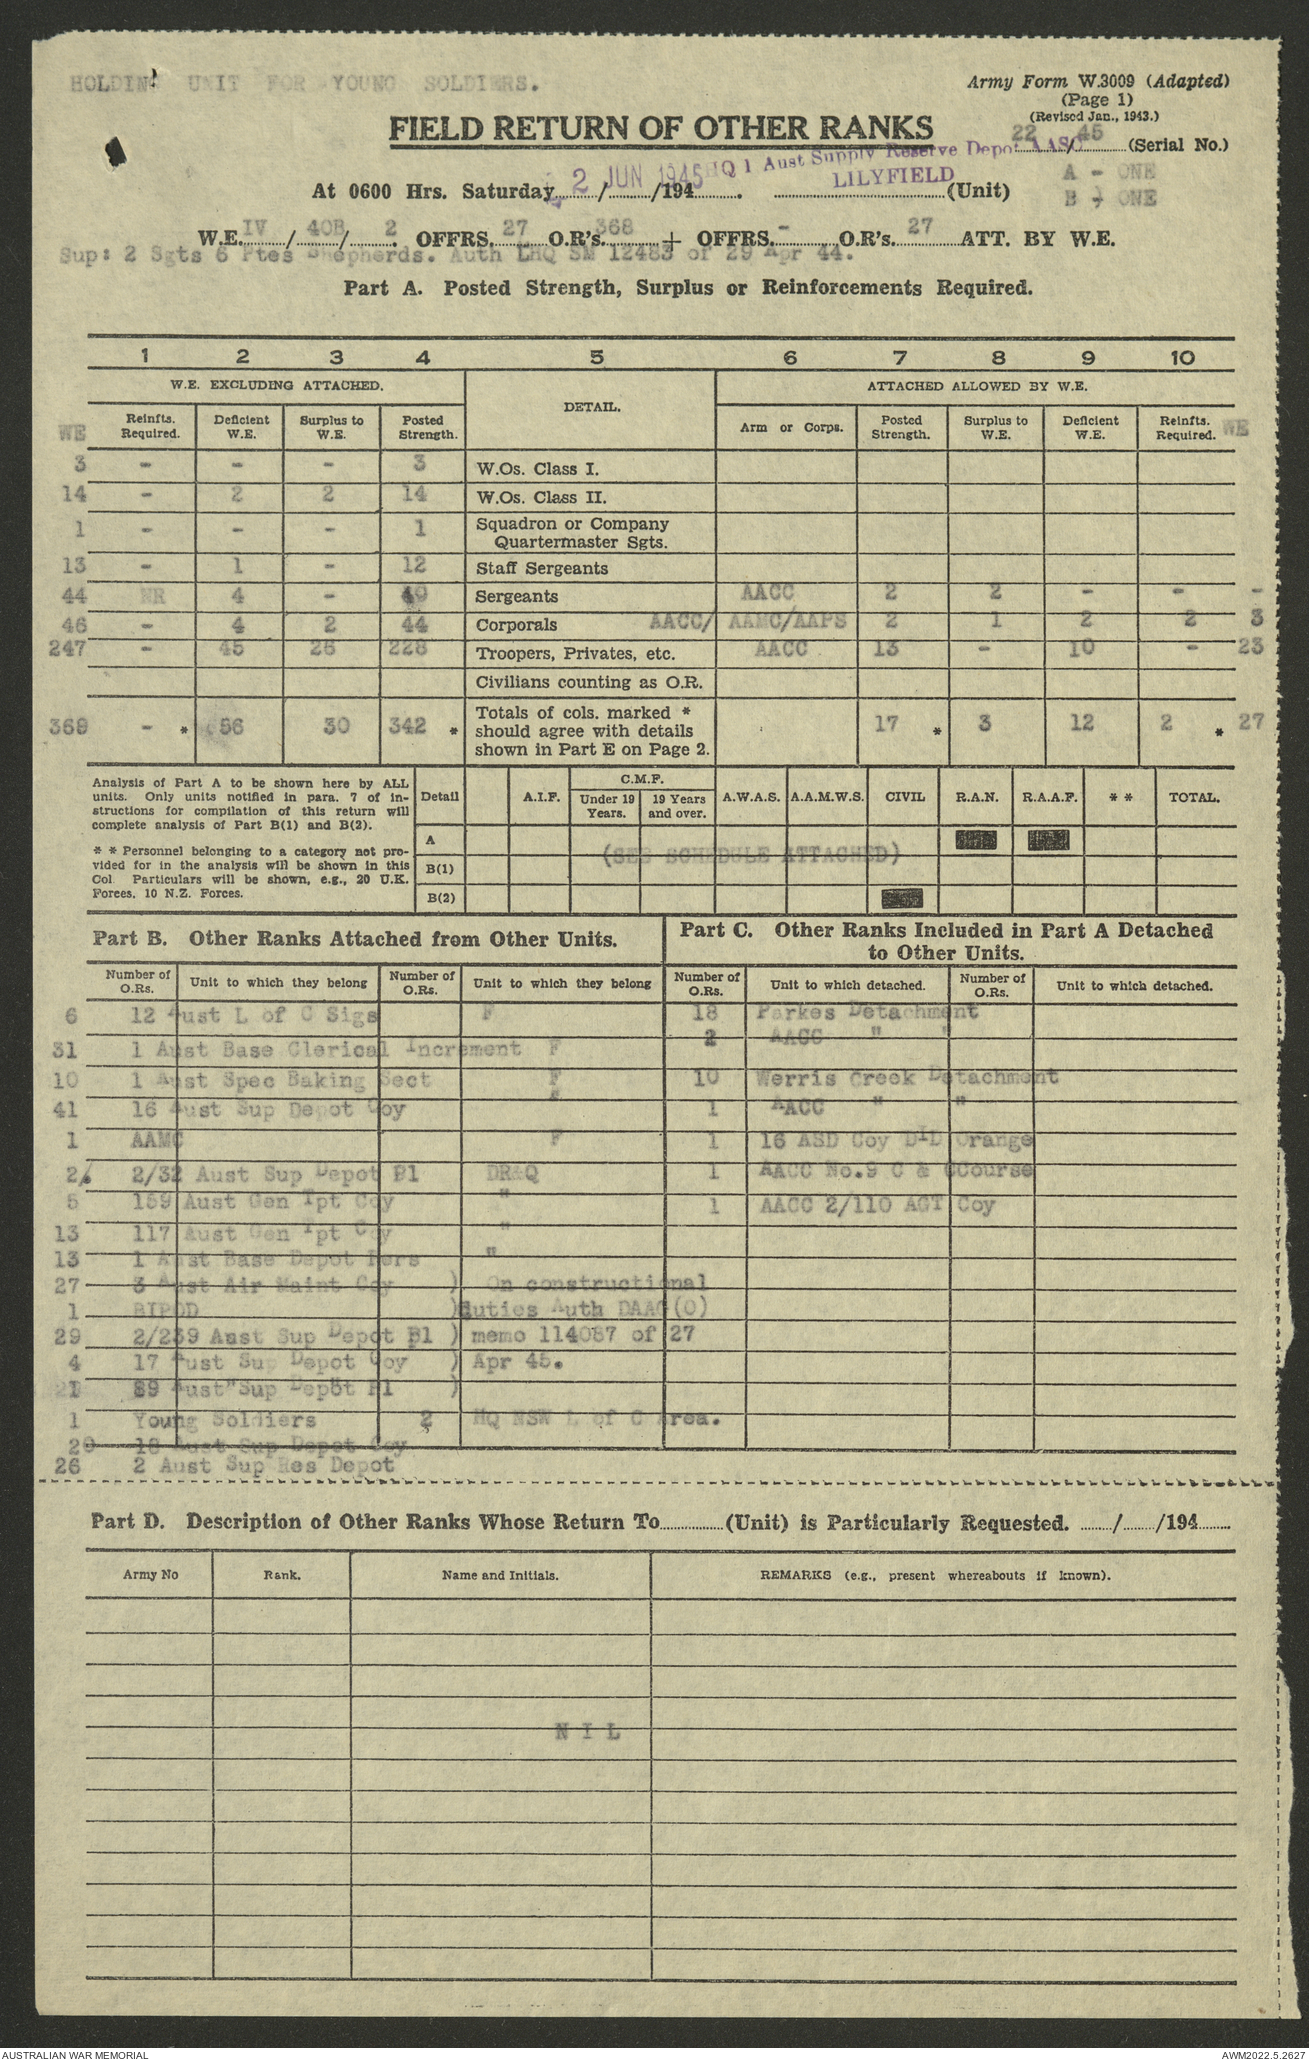 HOLDING UNIT FOR YOUNG SOLDIERS.
Army Form W.3009 (Adapted)
(Page 1)
(Revised Jan., 1943.)
FIELD RETURN OF OTHER RANKS
22/45 (Serial No.)
HQ 1 Aust Supply Reserve Depot AASC
LILYFIELD
A - ONE
B - ONE
At 0600 Hrs. Saturday 2 JUN 1945 /194 . (Unit)
W.E. IV / 40B / 2 . OFFRS. 27 O.R's. 368 + OFFRS. - O.R's. 27 ATT. BY W.E.
Sup: 2 Sgts 6 Ptes Shepherds. Auth LHQ SM 12483 of 29 Apr 44.
Part A. Posted Strength, Surplus or Reinforcements Required.
1 2 3 4 5 6 7 8 9 10
W.E. EXCLUDING ATTACHED. DETAIL. ATTACHED ALLOWED BY W.E.
WE Reinfts. Required. Deficient W.E. Surplus to W.E. Posted Strength. Arm or Corps. Posted Strength. Surplus to W.E. Deficient W.E. Reinfts. Required. WE
3 - - - 3 W.Os. Class I.
14 - 2 2 14 W.Os. Class II.
1 - - - 1 Squadron or Company Quartermaster Sgts.
13 - 1 - 12 Staff Sergeants
44 NR 4 - 40 Sergeants AACC 2 2 - - -
46 - 4 2 44 Corporals AACC/ AAMC/AAPS 2 1 2 2 3
247 - 45 26 228 Troopers, Privates, etc. AACC 13 - 10 - 23
Civilians counting as O.R.
369 - * 56 30 342 * Totals of cols. marked * should agree with details shown in Part E on Page 2. 17 * 3 12 2 * 27
Analysis of Part A to be shown here by ALL
units. Only units notified in para. 7 of in-
structions for compilation of this return will
complete analysis of Part B(1) and B(2).
* * Personnel belonging to a category not pro-
vided for in the analysis will be shown in this
Col. Particulars will be shown, e.g., 20 U.K.
Forces, 10 N.Z. Forces.
Detail A.I.F. C.M.F. Under 19 Years. 19 Years and over. A.W.A.S. A.A.M.W.S. CIVIL R.A.N. R.A.A.F. * * TOTAL.
A
(SEE SCHEDULE ATTACHED)
B(1)
B(2)
Part B. Other Ranks Attached from Other Units.
Part C. Other Ranks Included in Part A Detached
to Other Units.
Number of O.Rs. Unit to which they belong Number of O.Rs. Unit to which they belong Number of O.Rs. Unit to which detached. Number of O.Rs. Unit to which detached.
6 12 Aust L of C Sigs F 18 Parkes Detachment
31 1 Aust Base Clerical Increment F 2 AACC " "
10 1 Aust Spec Baking Sect F 10 Werris Creek Detachment
41 16 Aust Sup Depot Coy F 1 AACC " "
1 AAMC F 1 16 ASD Coy DID Orange
2 2/32 Aust Sup Depot Pl DR&Q 1 AACC No.9 C & CCourse
5 159 Aust Gen Tpt Coy " 1 AACC 2/110 AGT Coy
13 117 Aust Gen Tpt Coy "
13 1 Aust Base Depot Pers "
27 3 Aust Air Maint Coy ) On constructional
1 BIPOD )duties Auth DAAG(O)
29 2/239 Aust Sup Depot Pl ) memo 114087 of 27
4 17 Aust Sup Depot Coy ) Apr 45.
21 89 Aust Sup Depot Pl )
1 Young Soldiers 2 HQ NSW L of C Area.
20 18 Aust Sup Depot Coy
26 2 Aust Sup Res Depot
Part D. Description of Other Ranks Whose Return To (Unit) is Particularly Requested. / /194
Army No Rank. Name and Initials. REMARKS (e.g., present whereabouts if known).
N I L
AUSTRALIAN WAR MEMORIAL AWM2022.5.2627